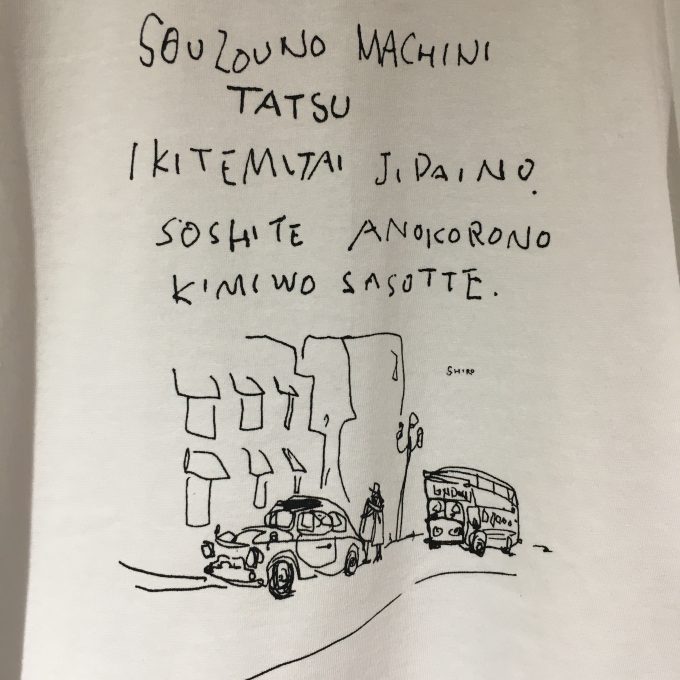 SOUZOUNO MACHINI
TATSU
IKITEMITAI JIDAINO.
SOSHITE ANOKORONO
KIMIWO SASOTTE.
SHIRO